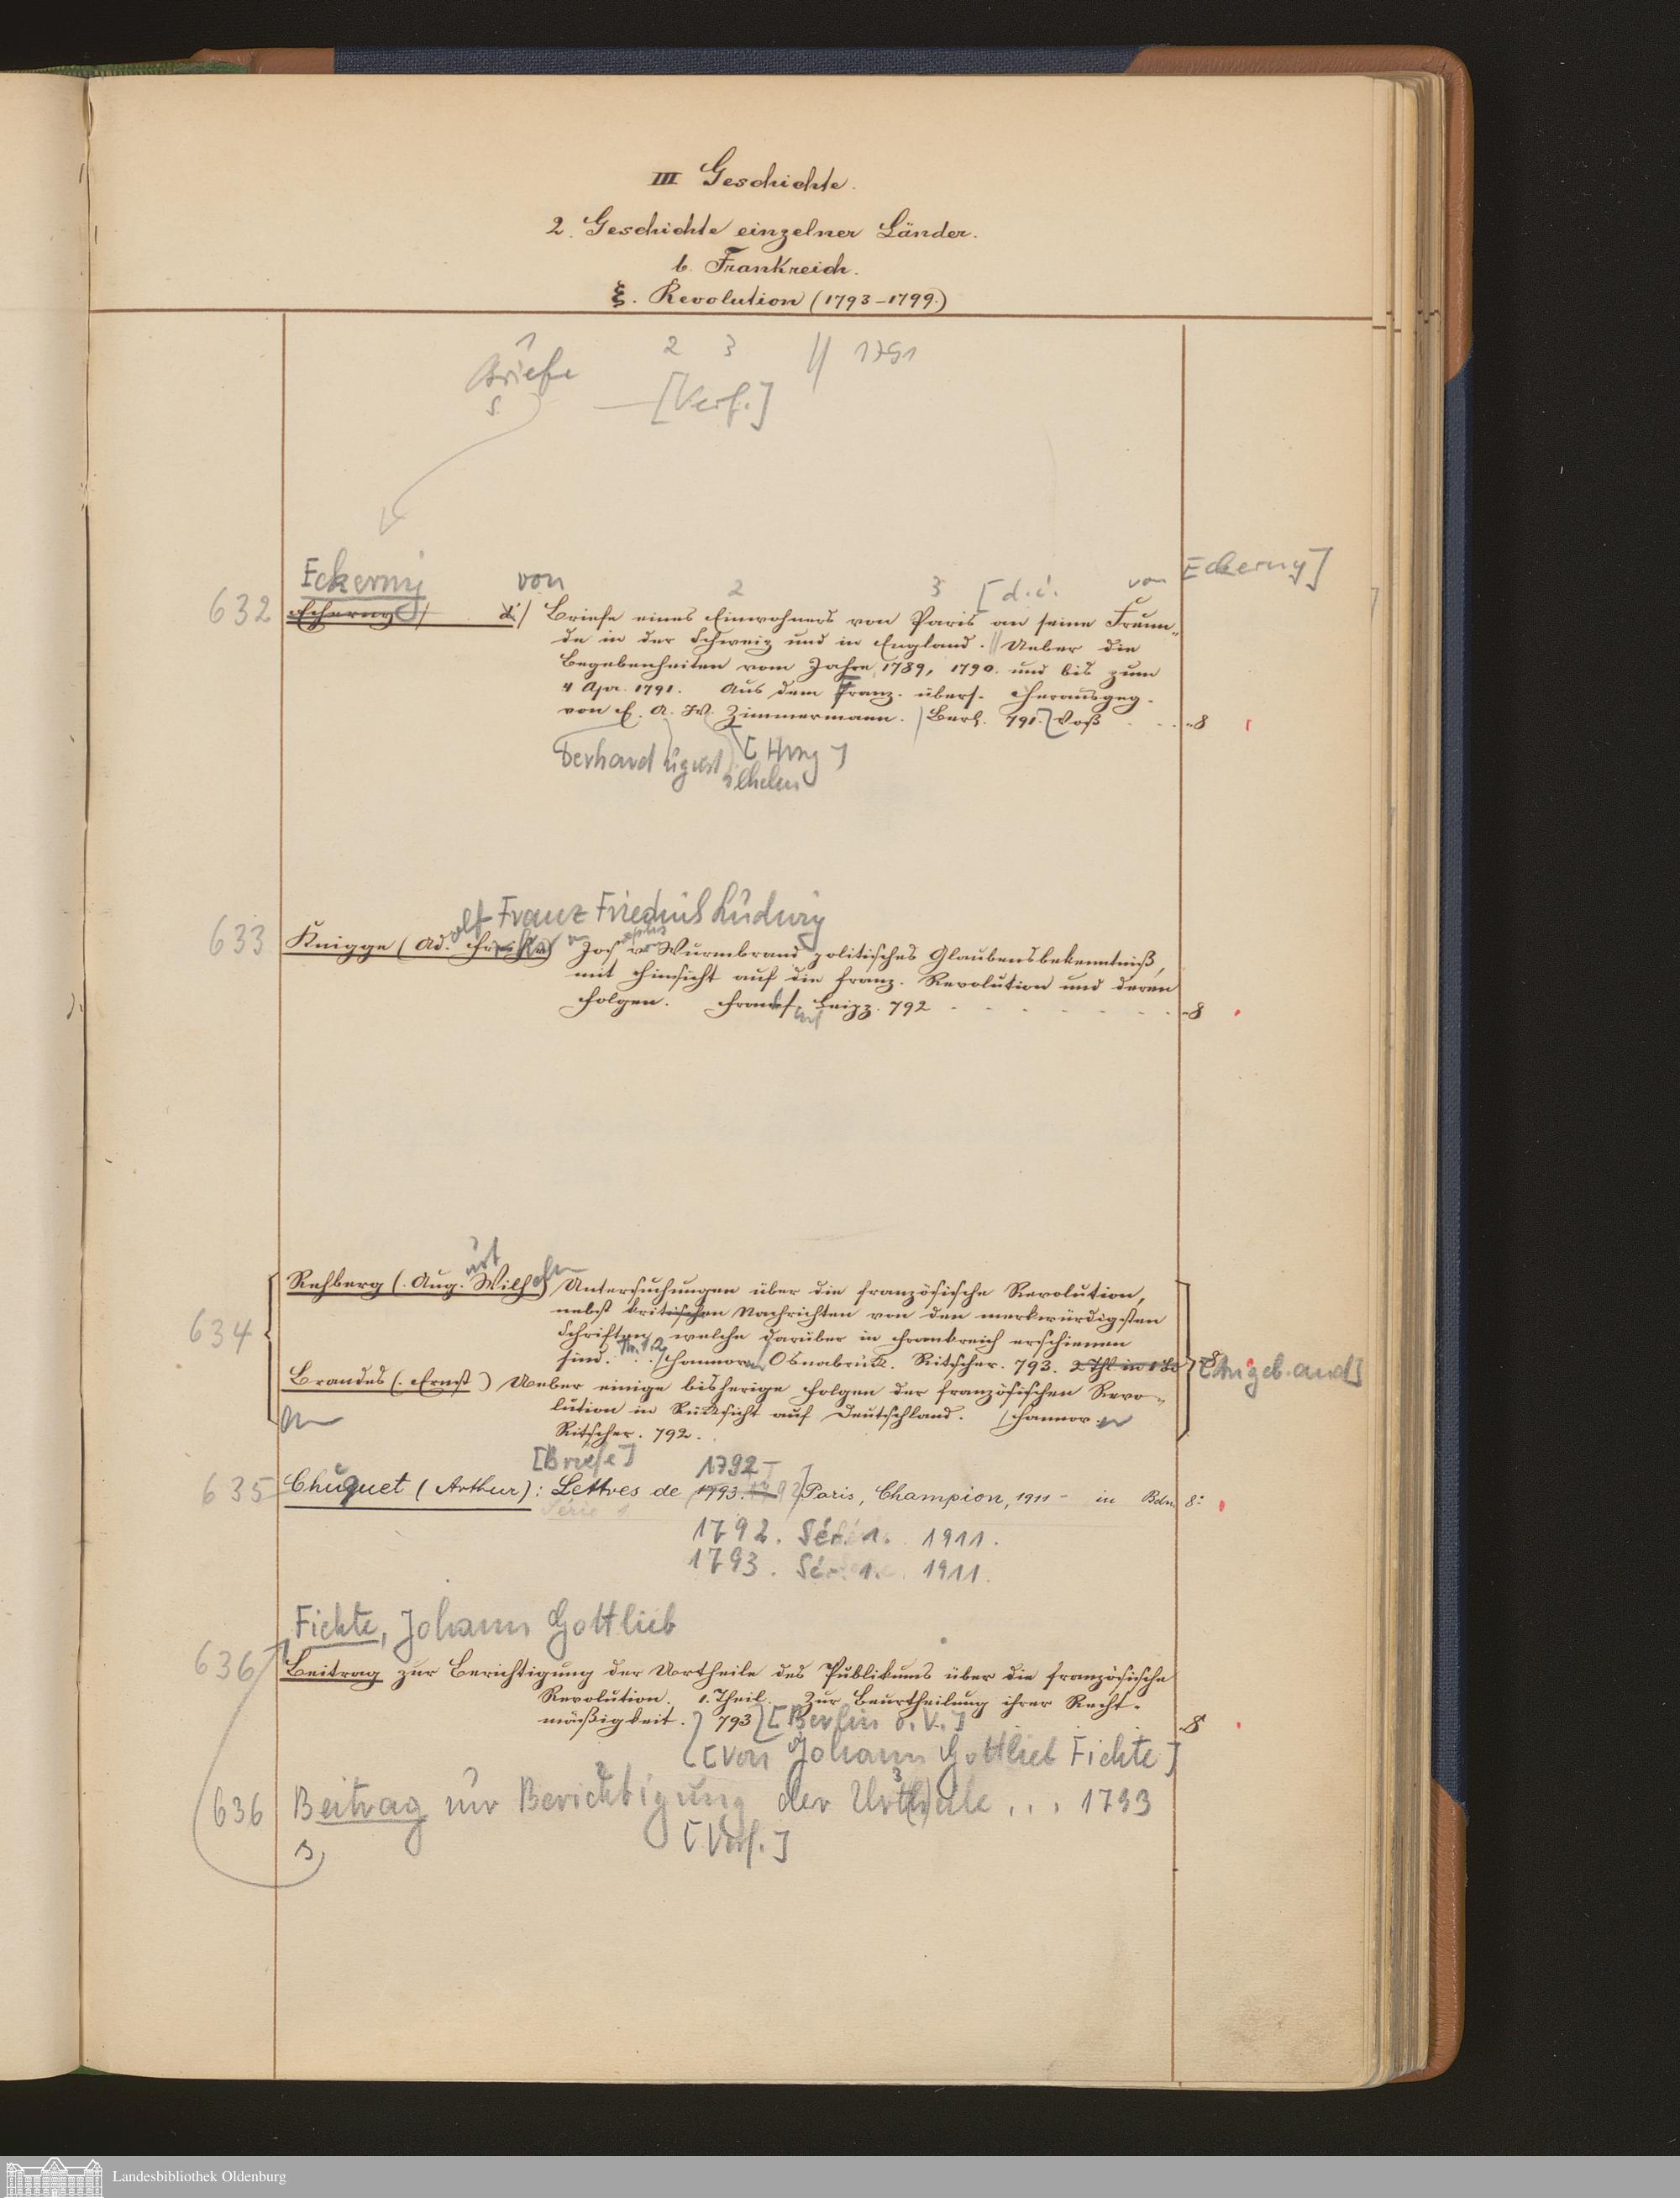 III Geschichte.
2. Geschichte einzelner Länder.
b. Frankreich.
ξ. Revolution (1793-1799.)
1 2 3 // 1791
Briefe
s. — [Verf.]
Eckerny von 2 3 [d.i. von Eckerny]
632 Escherny / d'/ Briefe eines Einwohners von Paris an seine Freun-
de in der Schweiz und in England. // Ueber die
Begebenheiten vom Jahre 1789, 1790. und bis zum
4 Apr. 1791. Aus dem Franz. übers. Herausgeg.
von E. A. W. Zimmermann. Berl. 791. Voß . . 8
berhard ugust [Hrsg]
ilhelm
olf Franz Friedrich Ludwig
633 Knigge (Ad. Jos. v. Wurmbrand politisches Glaubensbekenntniß,
mit Hinsicht auf die franz. Revolution und deren
Folgen. Frankf. Leipz. 792 . . . . . . . 8
ust
634 Rehberg (Aug. Wilhelm) Untersuchungen über die französische Revolution,
nebst kritischen Nachrichten von den merkwürdigsten
Schriften welche darüber in Frankreich erschienen
sind. Th. 1.2. Hannover Osnabrück. Ritscher. 793. 2 Thl. in 1 Bd 8 [Angeb. and]
Brandes (Ernst) Ueber einige bisherige Folgen der französischen Revo-
lution in Rücksicht auf Deutschland. Hannover
An Ritscher. 792.
[Briefe] 1792-
635 Chuquet (Arthur): Lettres de 1793. 1792 Paris, Champion, 1911 - in Bdn. 8°
Série 1
1792. Sér. 1. 1911.
1793. Sér. 1. 1911.
Fichte, Johann Gottlieb
636 Beitrag zur Berichtigung der Urtheile des Publikums über die französische
Revolution. 1. Theil. Zur Beurtheilung ihrer Recht-
mäßigkeit. 793 [Berlin o. V.] 8
[von Johann Gottlieb Fichte]
636 Beitrag zur Berichtigung der Urt(h)eile ... 1793
s. [Verf.]
Landesbibliothek Oldenburg